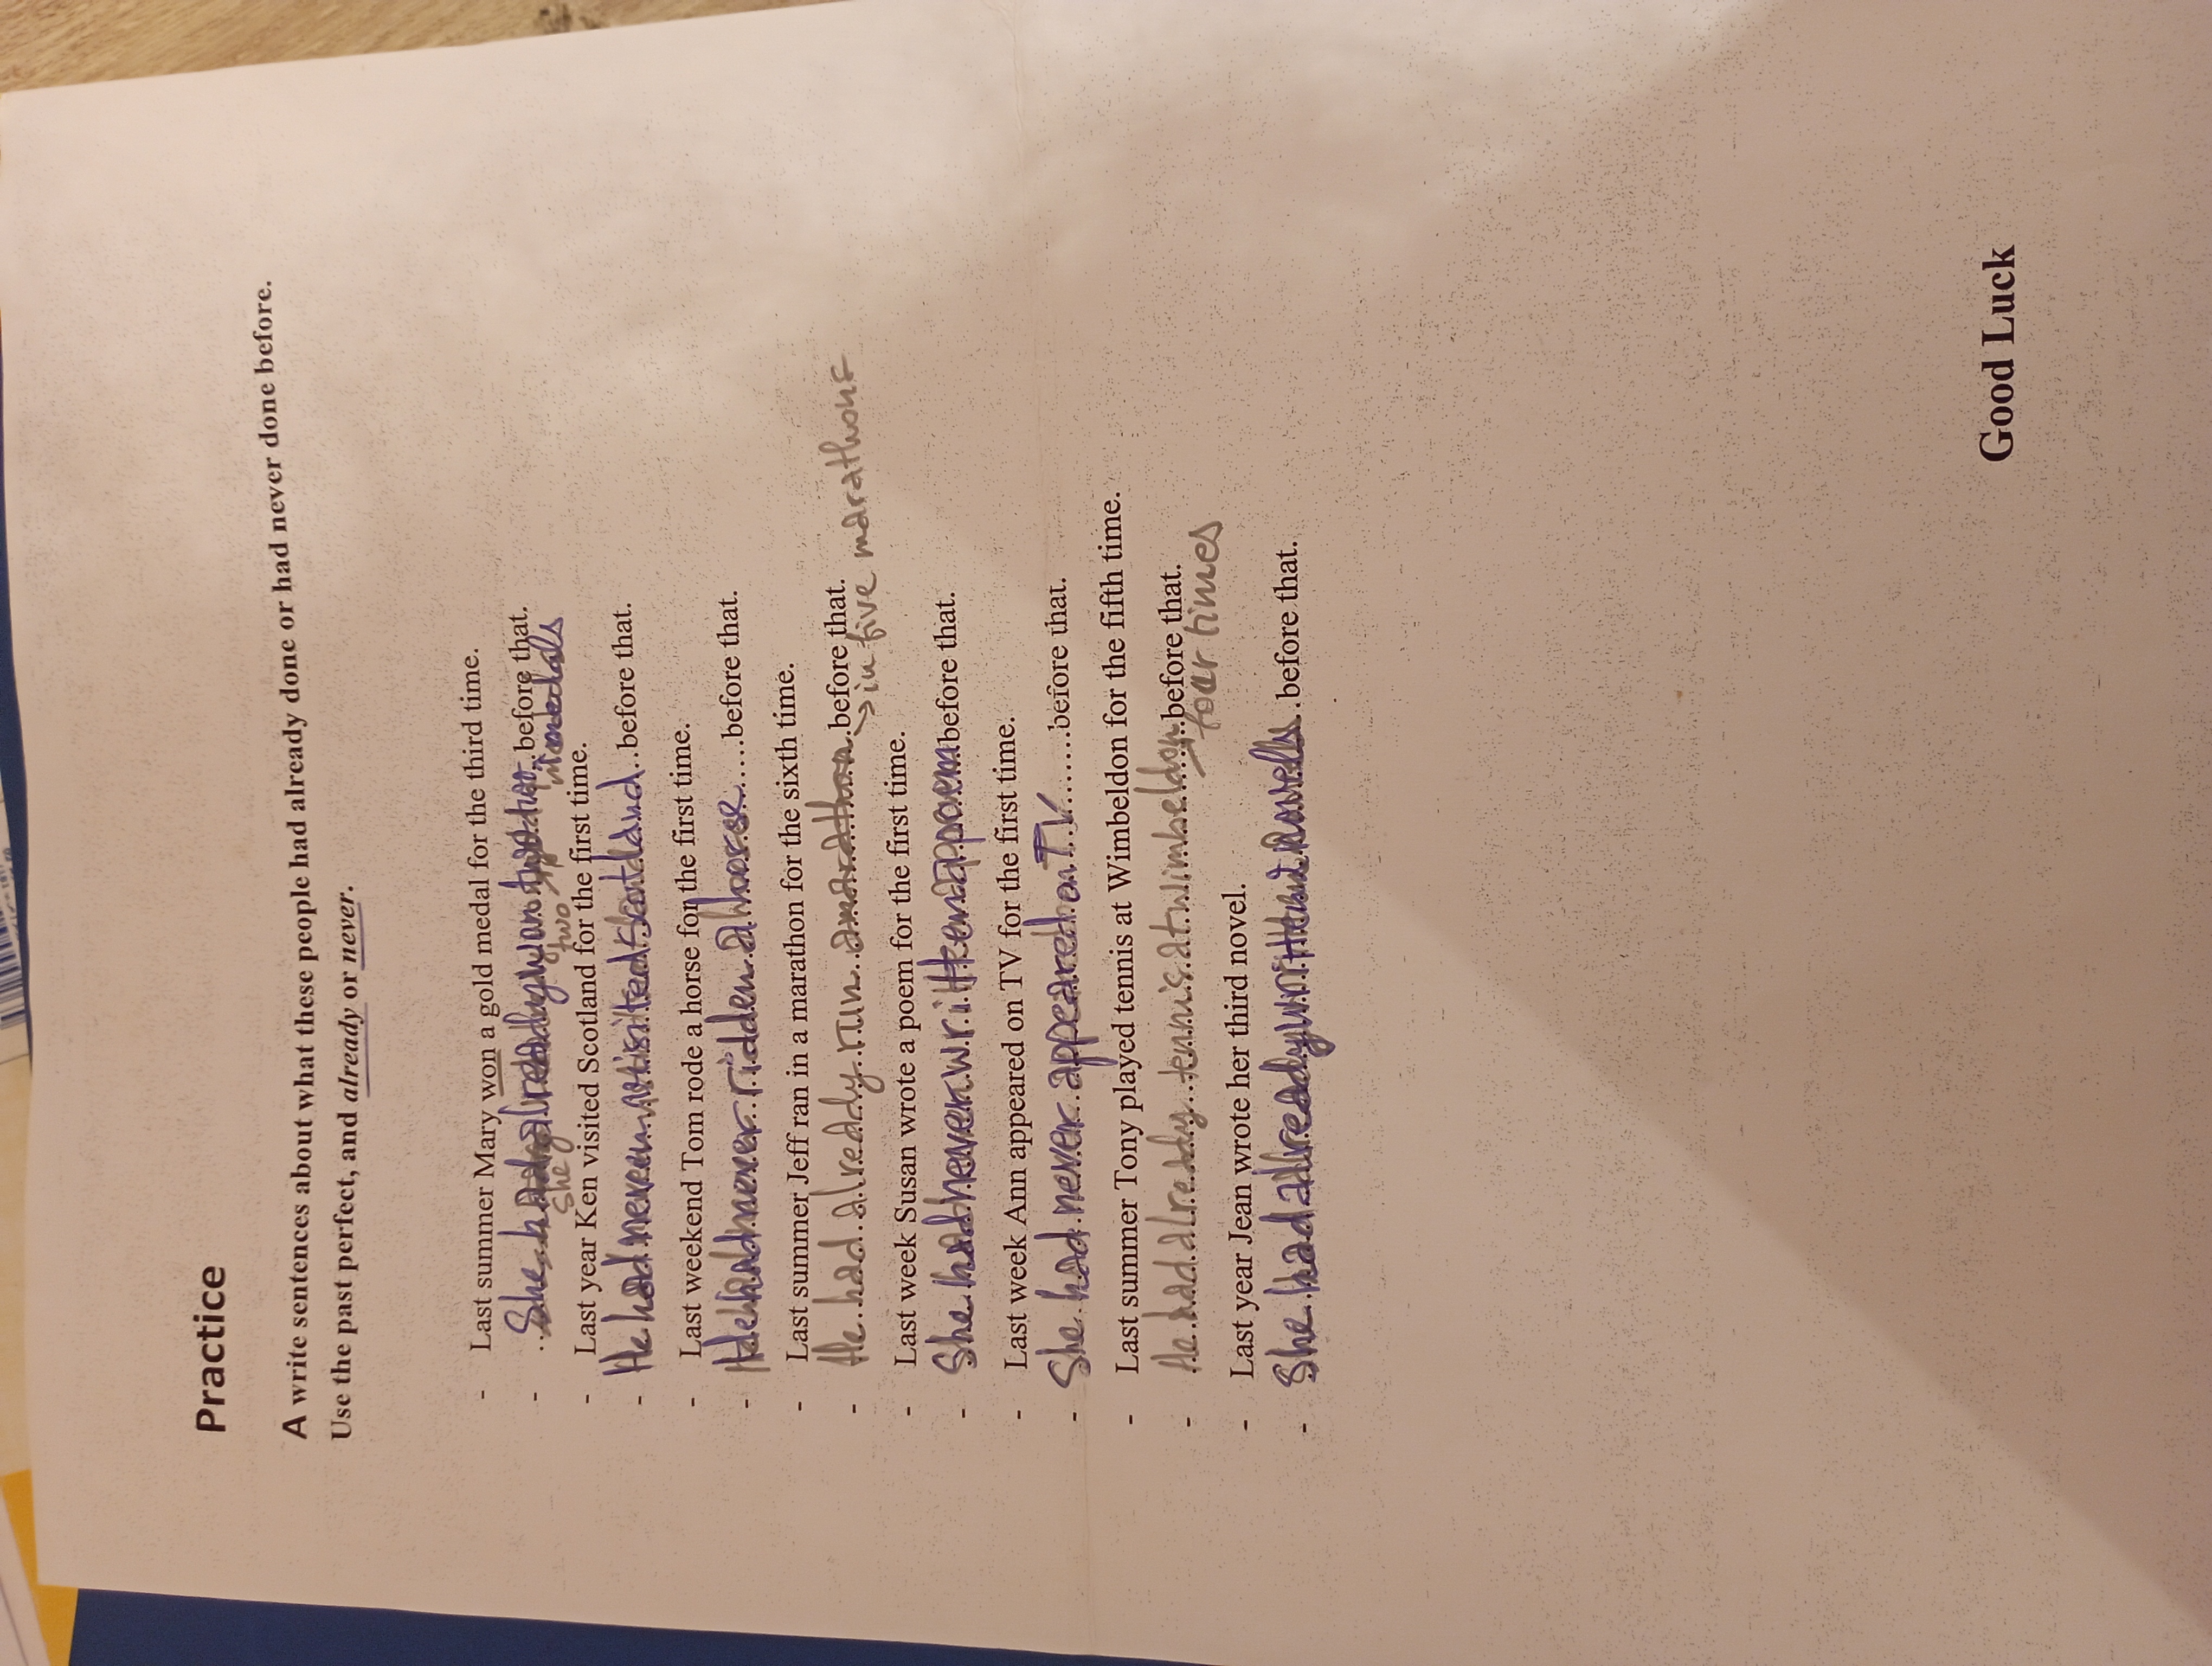 Practice
A write sentences about what these people had already done or had never done before.
Use the past perfect, and already or never.
- Last summer Mary won a gold medal for the third time.
- ..She had already won before that.
She two medals
- Last year Ken visited Scotland for the first time.
- He had never visited Scotland..before that.
- Last weekend Tom rode a horse for the first time.
- He had never ridden a horse.....before that.
- Last summer Jeff ran in a marathon for the sixth time.
- He had alreddy run a marathon before that.
in five marathons
- Last week Susan wrote a poem for the first time.
- She had never written a poem before that.
- Last week Ann appeared on TV for the first time.
- She had never appeared on TV.......before that.
- Last summer Tony played tennis at Wimbeldon for the fifth time.
- He had alreaddy tennis at wimbeldon before that.
foar times
- Last year Jean wrote her third novel.
- She had already written novels..before that.
Good Luck